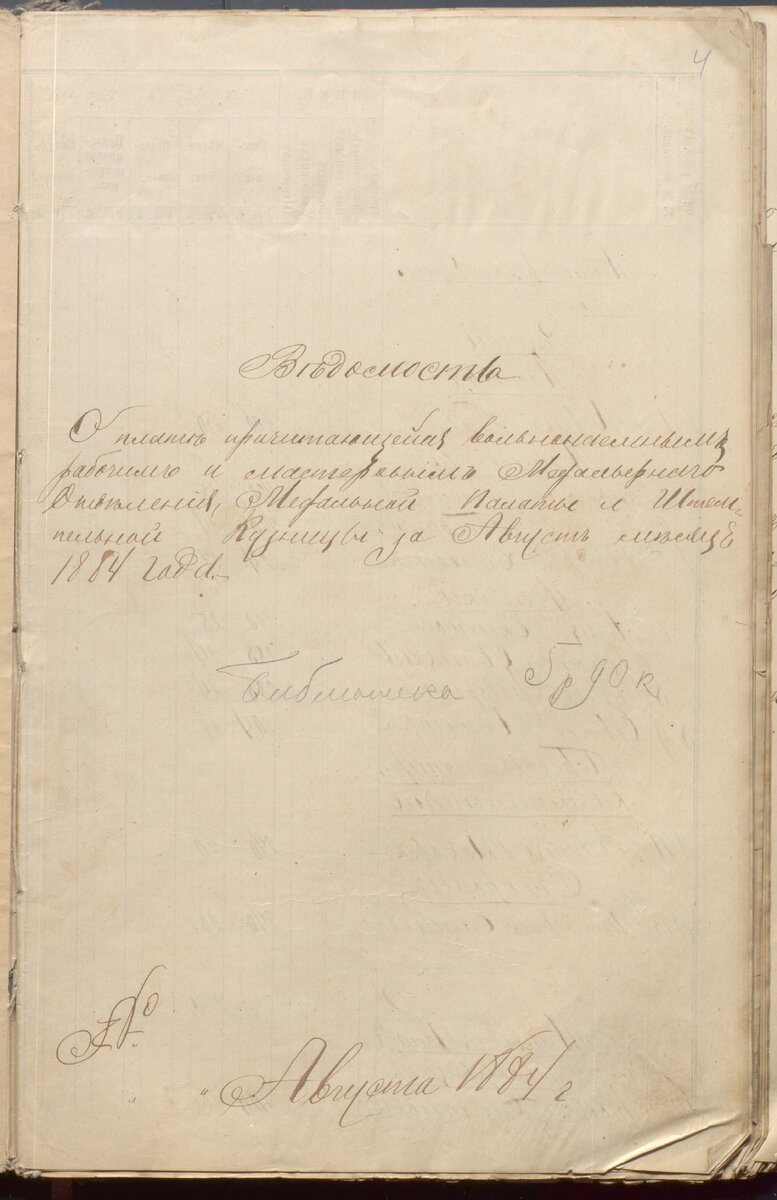 4
Вѣдомость
О платѣ причитающейся вольнонаемнымъ
рабочимъ и мастеровымъ Медальернаго
Отдѣленія, Медальной Палаты и Штем-
пельной Кузницы за Августъ мѣсяцъ
1884 года.
Библиотека 5 р 90 к.
№
" " Августа 1884 г